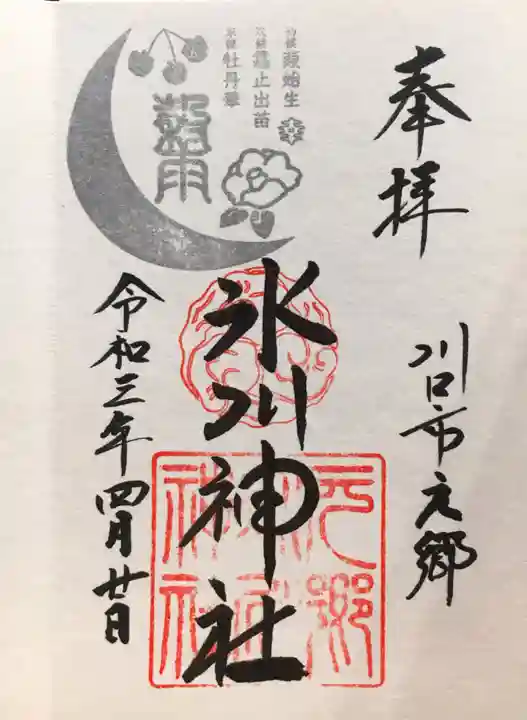 奉拝
川口市元郷
初候 葭始生
次候 霜止出苗
末候 牡丹華
穀雨
氷川神社
元郷
氷川
神社
令和三年四月廿日